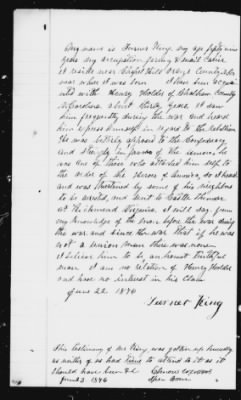 My name is Turner King my age fifty nine
years my occupation farming & small
I reside near Chapel Hill Orange County
near where I was born I have been acquain
ted with Henry of Chatham County
N Carolina about thirty years. I saw
him frequently during the war and heard
him express himself in regard to the rebellion
He was bitterly opposed to the Confederacy
and strongly in favor of the union, he
was one of those who attached him self to
the order of the Heroes of America, so it heard
and was threatened by some of his neighbors
to be arrested, and sent to Castle Thunder
at Richmond Virginia, I will say from
my knowledge of the man before the war during
the war and since the war that if he was
not a union man there was none
I believe him to be an honest truthful
man I am no relation of Henry
and have no interest in his Claim
June 22 1876
Turner King
This testimony of Mr King, was gotten up hurriedly
as neither of us had time to attend to it as it
should have been &c
June 22 1876